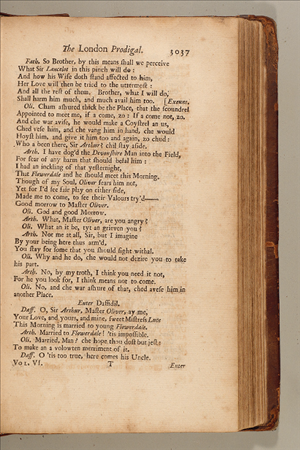 The London Prodigal. 3037
Fath. So Brother, by this means shall we perceive
What Sir Lancelot in this pinch will do:
And how his Wife doth stand affected to him,
Her Love will then be tried to the uttermost:
And all the rest of them. Brother, what I will do,
Shall harm him much, and much avail him too. [Exeunt.
Oli. Cham assured thick be the Place, that the scoundrel
Appointed to meet me, if a come, zo: if a come not, zo.
And che war avise, he would make a Coystrel an us,
Ched vese him, and che vang him in hand, che would
Hoyst him, and give it him too and again, zo chud:
Who a been there, Sir Arthur? chil stay aside.
Arth. I have dog'd the Devonshire Man into the Field,
For fear of any harm that should befal him:
I had an inckling of that yesternight,
That Flowerdale and he should meet this Morning.
Though of my Soul, Oliver fears him not,
Yet for I'd see fair play on either side,
Made me to come, to see their Valours try'd——
Good morrow to Master Oliver.
Oli. God and good Morrow.
Arth. What, Master Oliver, are you angry?
Oli. What an it be, tyt an grieven you?
Arth. Not me at all, Sir, but I imagine
By your being here thus arm'd,
You stay for some that you should fight withal.
Oli. Why and he do, che would not dezire you to take
his part.
Arth. No, by my troth, I think you need it not,
For he you look for, I think means not to come.
Oli. No, and che war assure of that, ched avese him in
another Place.
Enter Daffidill.
Daff. O, Sir Arthur, Master Oliver, ay me,
Your Love, and yours, and mine, sweet Mistress Luce
This Morning is married to young Flowerdale.
Arth. Married to Flowerdale! 'tis impossible.
Oli. Married, Man? che hope thou dost but jest
To make an a volowten merriment of it.
Daff. O 'tis too true, here comes his Uncle.
Vol. VI. T Enter